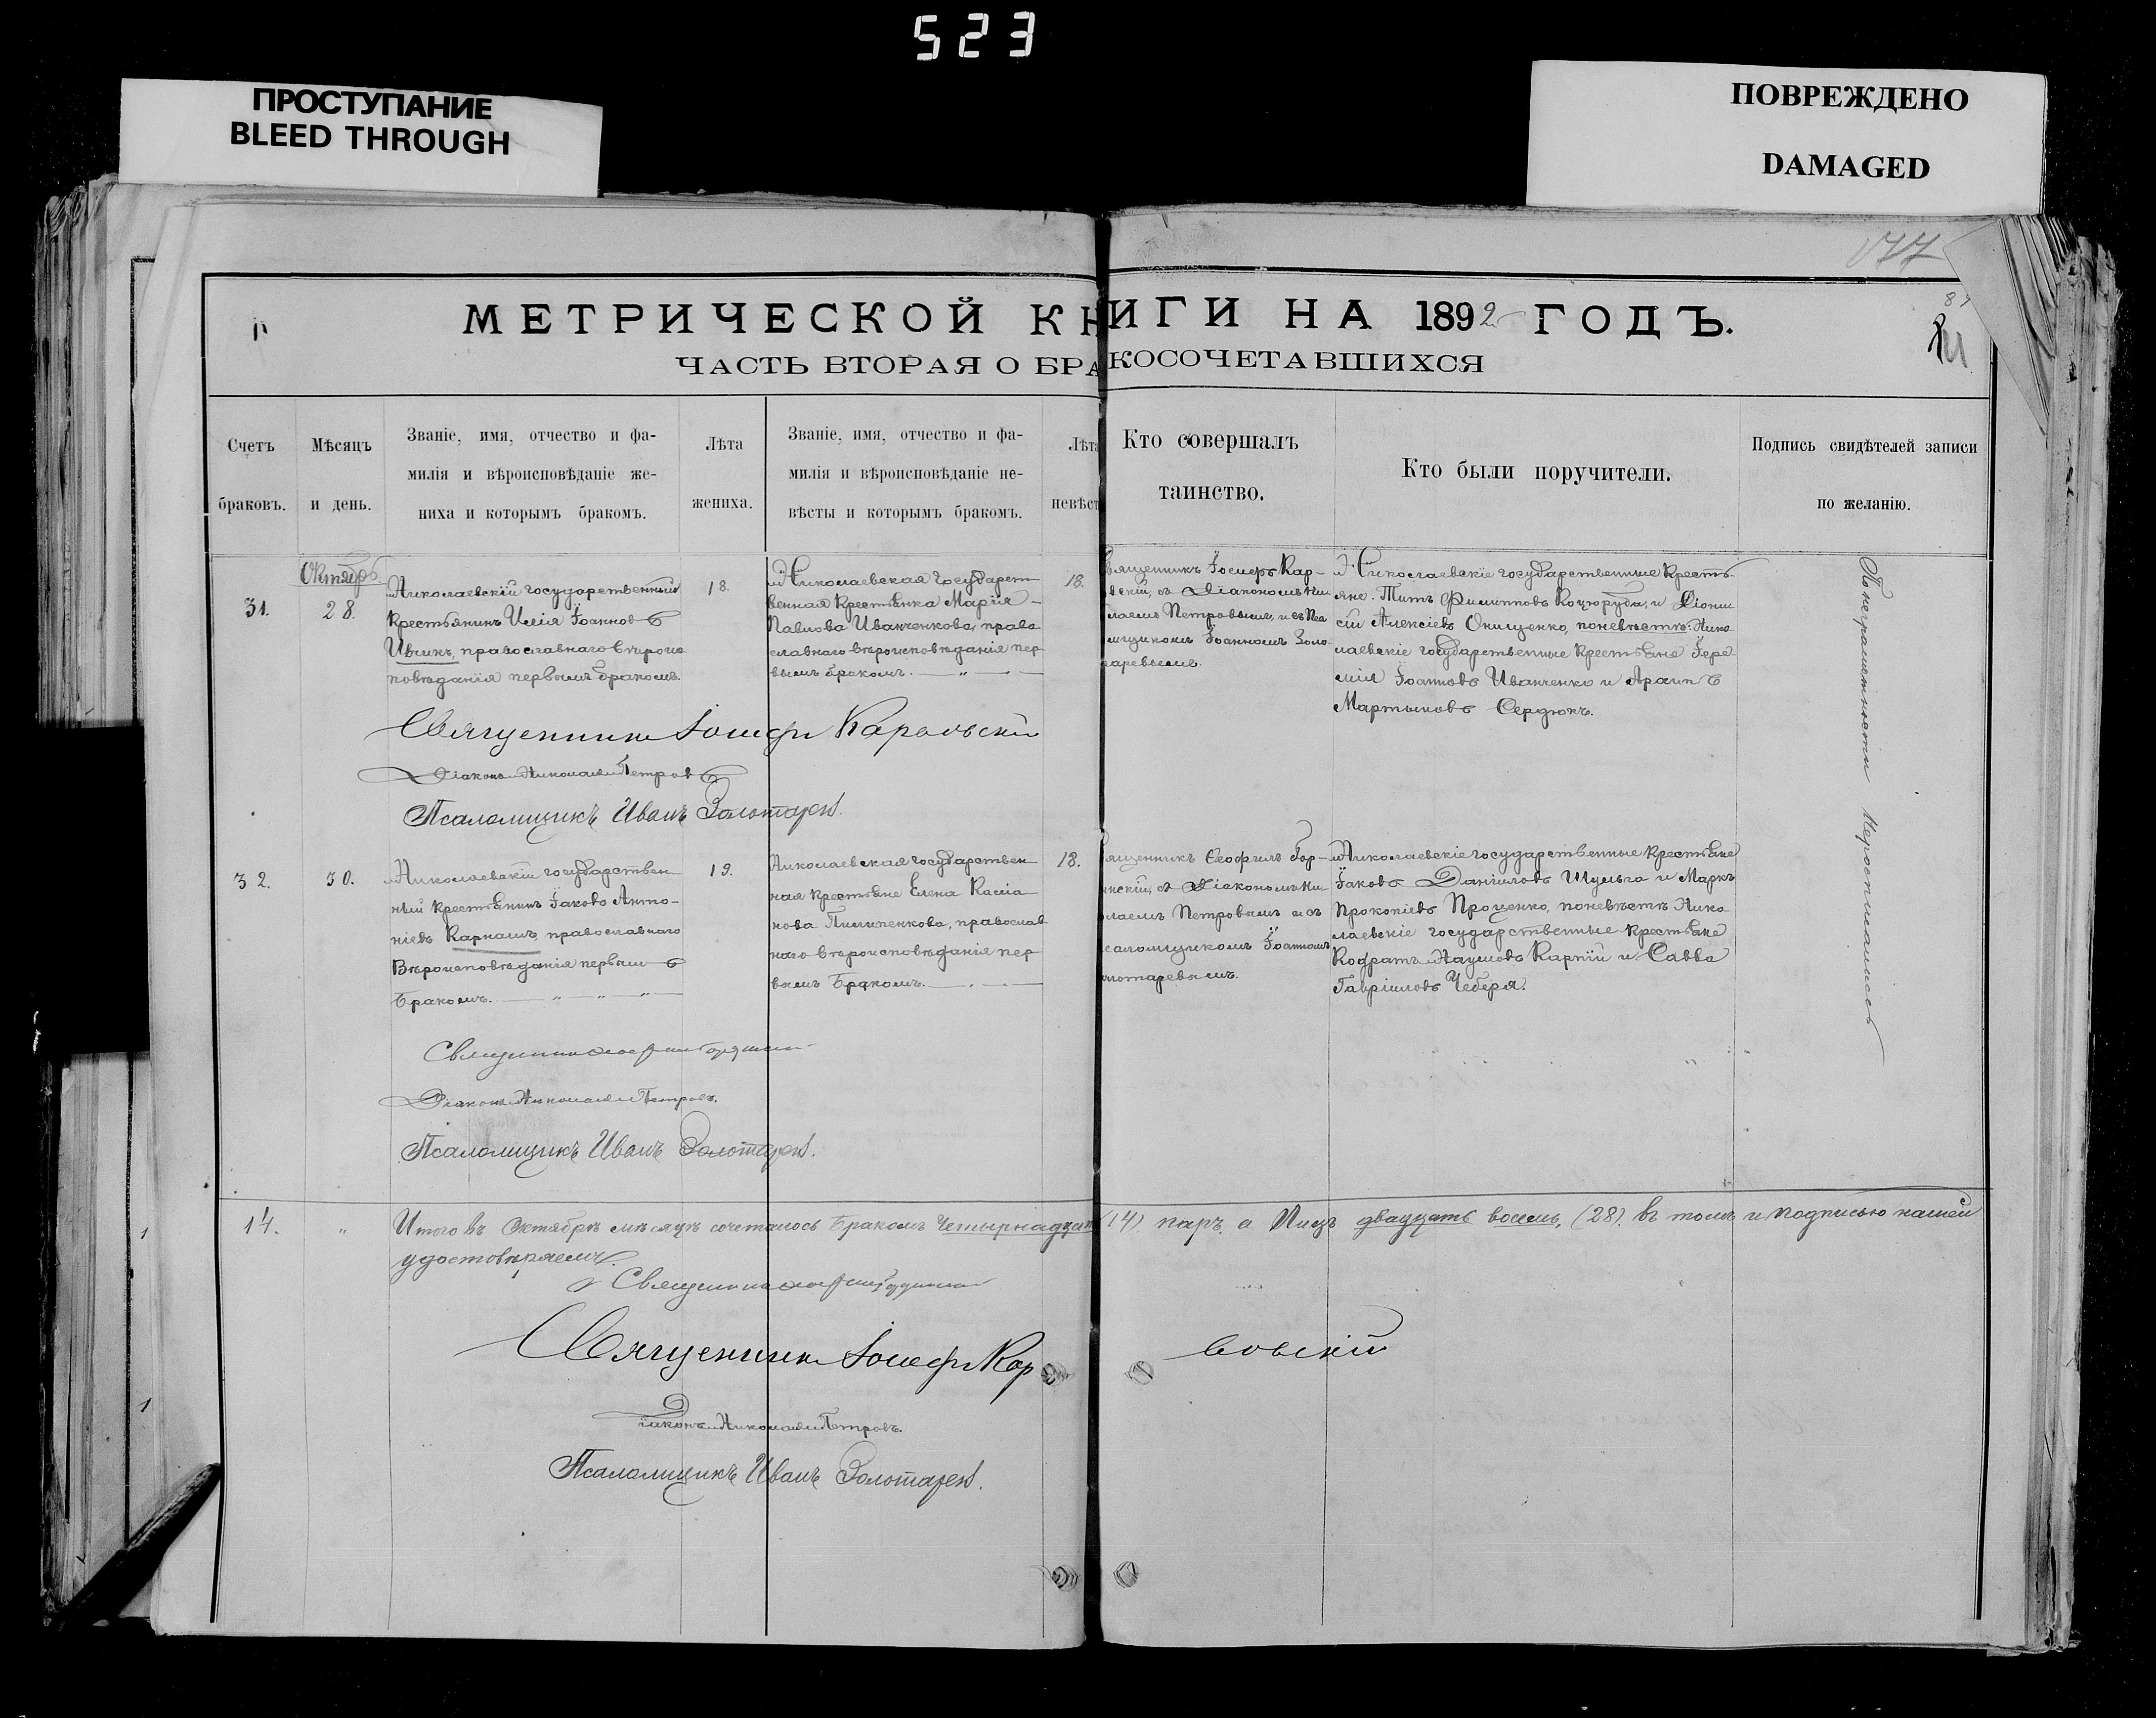 523
ПРОСТУПАНИЕ
BLEED THROUGH
ПОВРЕЖДЕНО
DAMAGED
177
МЕТРИЧЕСКОЙ КНИГИ НА 1892 ГОДЪ.
ЧАСТЬ ВТОРАЯ О БРАКОСОЧЕТАВШИХСЯ
Счетъ
браковъ.
Мѣсяцъ
и день.
Званіе, имя, отчество и фа-
милія и вѣроисповѣданіе же-
ниха и которымъ бракомъ.
Лѣта
жениха.
Званіе, имя, отчество и фа-
милія и вѣроисповѣданіе не-
вѣсты и которымъ бракомъ.
Лѣта
невѣст
Кто совершалъ
таинство.
Кто были поручители.
Подпись свидѣтелей записи
по желанію.
31.
Октябрь.
28.
Николаевскій государственный
крестьянинъ Илія Іоанновъ
Ивчикъ, православнаго вѣроис
повѣданія первымъ бракомъ.
18.
Николаевская государст
венная крестьянка Марія
Павлова Иванченкова, право
славнаго вѣроисповѣданія пер
вымъ бракомъ.
18.
вященникъ Іосифъ Кар-
вскій, съ Діакономъ Ни
лаемъ Петровымъ, и съ Пса
мщикомъ Іоанномъ Золо
таревымъ.
Николаевскіе государственные кресть-
яне: Титъ Филиповъ Коцюруба, и Діони
сій Алексіевъ Онищенко, поневѣстѣ: Нико
лаевскіе государственные крестьяне Іере
мія Іоанновъ Иванченко и Архипъ
Мартыновъ Сердюкъ.
Понеграмотности нерасписались
Священникъ Іосифъ Каровскій
Діаконъ Николай Петровъ
Псаломщикъ Иванъ Золотаревъ.
32.
30.
Николаевскій государствен
ный крестьянинъ Іаковъ Анто-
ніевъ Карнаихъ, православнаго
Вѣроисповѣданія первымъ
Бракомъ.
19.
Николаевская государствен
ная крестьяне Елена Касіа
нова Пилипенкова, православ
наго вѣроисповѣданія пер
вымъ Бракомъ.
18.
ященникъ Ѳеофилъ Гор-
инскій, съ Діакономъ Ни
лаемъ Петровымъ и съ
саломщикомъ Іоанномъ
лотаревымъ.
Николаевскіе государственные крестьяне
Іаковъ Даніиловъ Шульга и Маркъ
Прокопіевъ Проценко, поневѣстѣ Нико
лаевскіе государственные крестьяне
Кодратъ Наумовъ Карпій и Савва
Гавріиловъ Чеберя.
Священникъ
Діаконъ Николай Петровъ.
Псаломщикъ Иванъ Золотаревъ.
14.
Итого въ Октябрѣ мѣсяцѣ сочеталось Бракомъ Четырнадцать (14) паръ, а Лицъ двадцать восемь, (28). въ томъ и подписью нашей
удостовѣряемъ.
Священникъ
Священникъ Іосифъ Каровскій
Діаконъ Николай Петровъ.
Псаломщикъ Иванъ Золотаревъ.